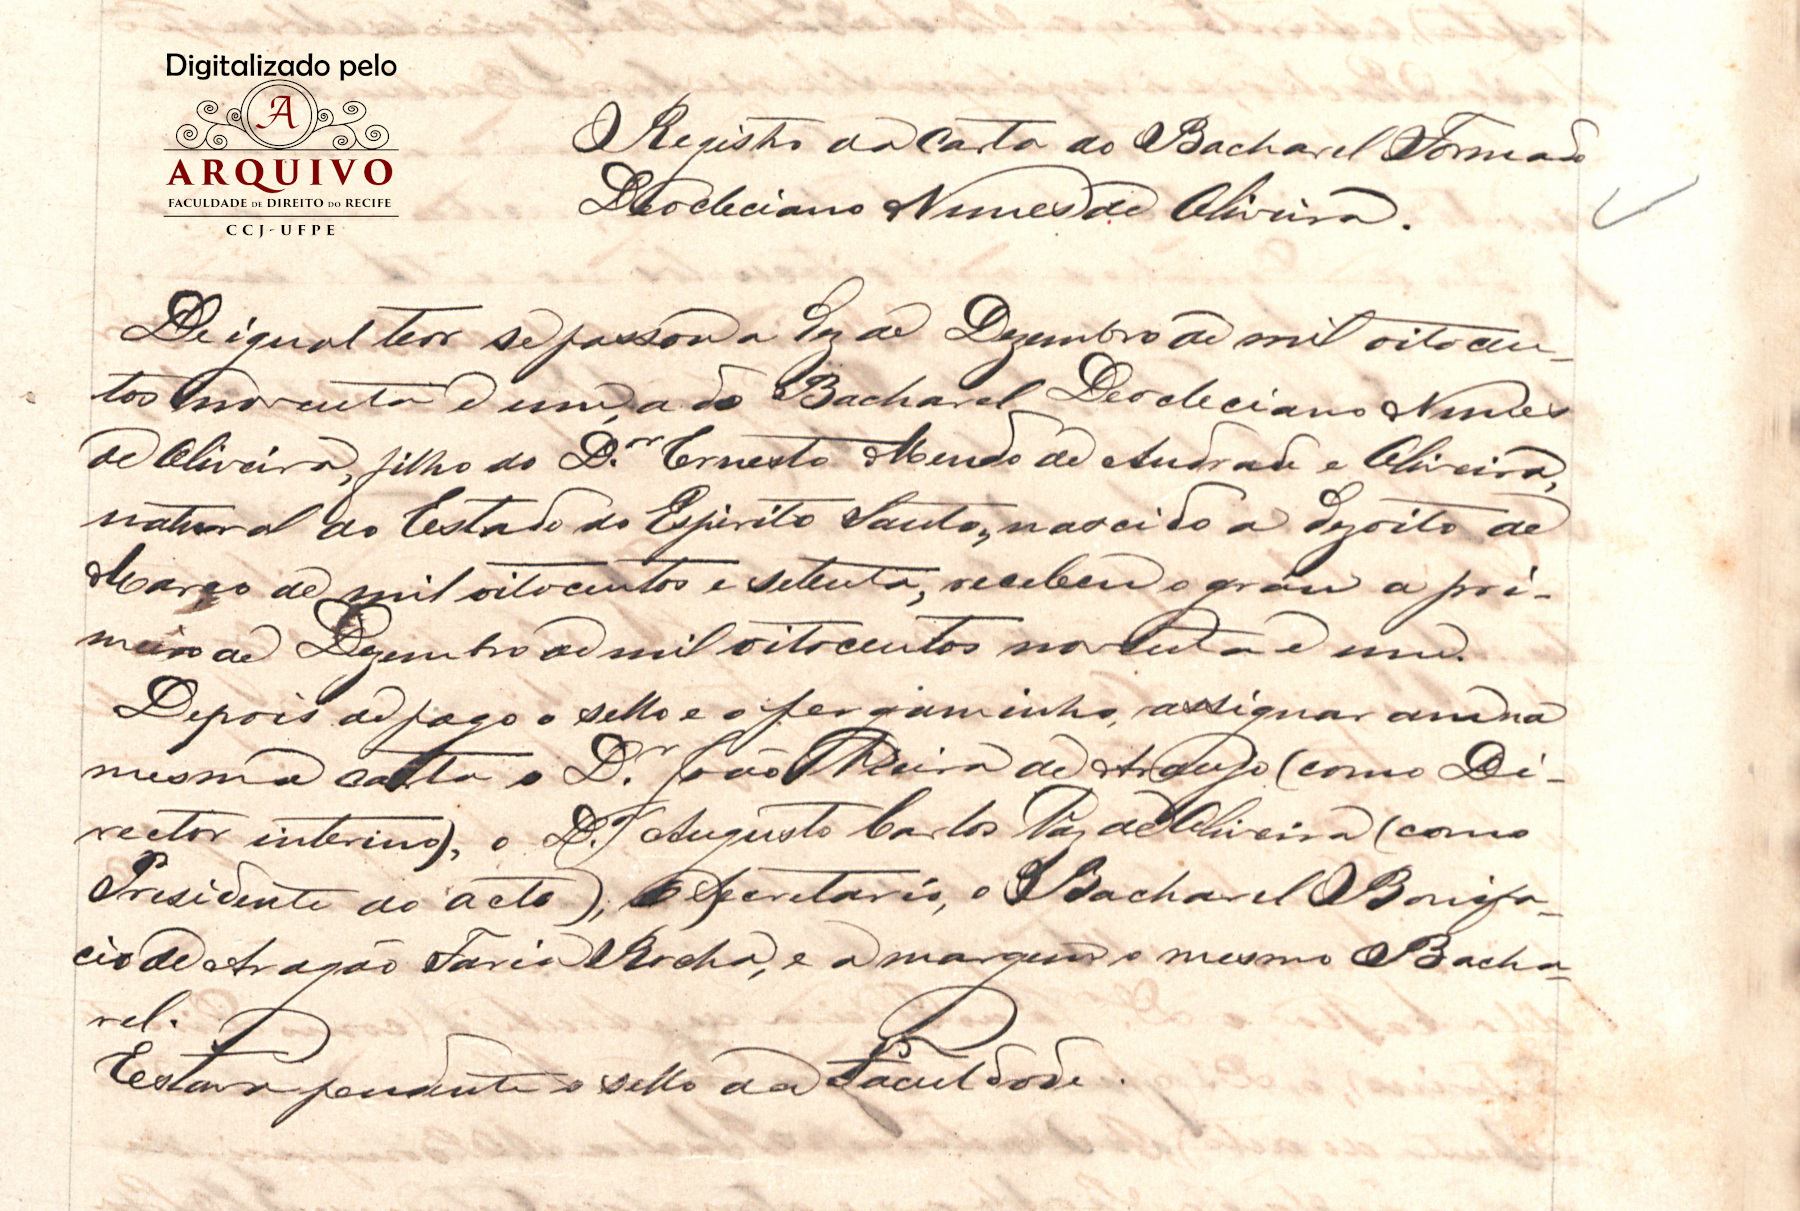 Digitalizado pelo
A
ARQUIVO
FACULDADE DE DIREITO DO RECIFE
CCJ-UFPE
Registro da Carta do Bacharel Formado
Deocleciano Nunes de Oliveira.
De igual teor se passou a dez de Dezembro de mil oitocen-
tos noventa e um, a do Bacharel Deocleciano Nunes
de Oliveira, filho do D.or Ernesto Mendo de Andrade e Oliveira,
natural do Estado do Espirito Santo, nascido a dezoito de
Março de mil oitocentos e setenta, recebeu o grau a pri-
meiro de Dezembro de mil oitocentos noventa e um.
Depois de pago o sello e o pergaminho, assignaram na
mesma carta o D.r João Vieira de Araujo (como Di-
rector interino), o D.r Augusto Carlos Vaz de Oliveira (como
Presidente do acto), o Secretario, o Bacharel Bonifa-
cio de Aragão Faria Rocha, e a margem o mesmo Bacha-
rel.
Estava pendente o sello da Faculdade.